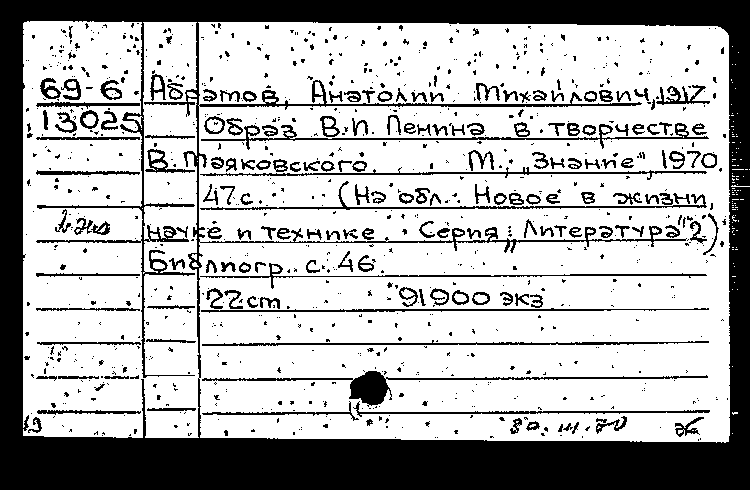 69-6 Абрамов, Анатолий Михайлович, 1917
13025 Образ В.И. Ленина в творчестве
В. Маяковского. М., „Знание“, 1970.
47с. (На обл.: Новое в жизни,
2 экз науке и технике. Серия „Литература“ 2)
Библиогр. с. 46.
22см. 91900 экз